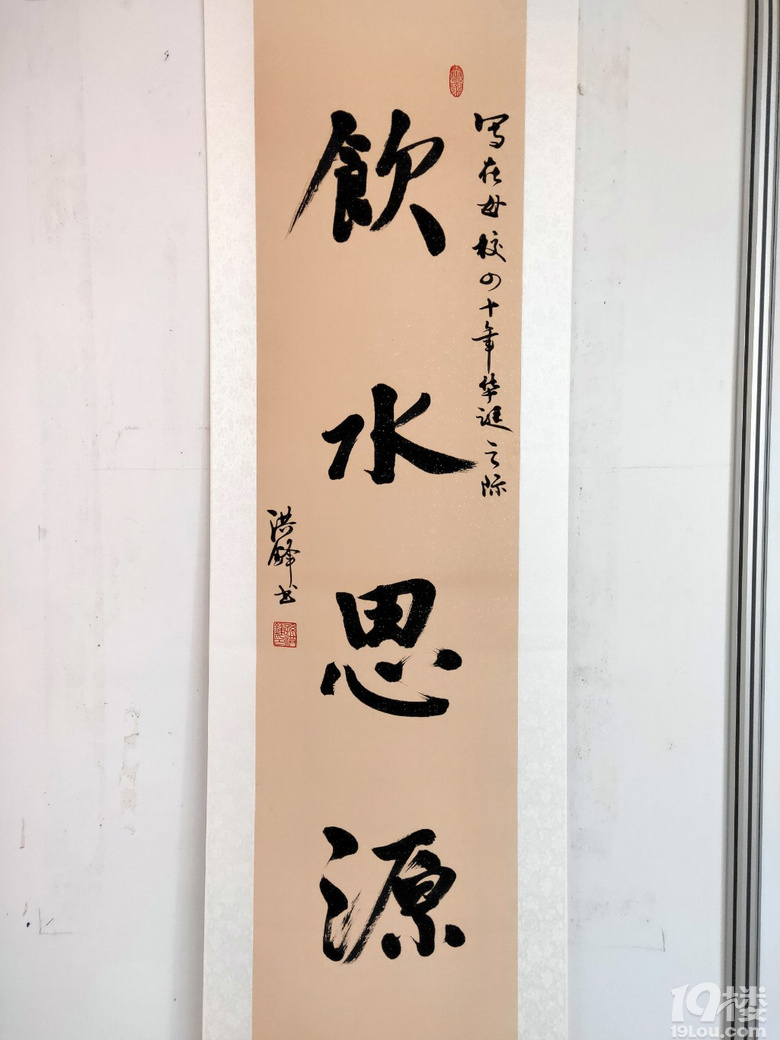 写在母校四十年华诞之际
飲水思源
洪鋒书
19楼
19Lou.com